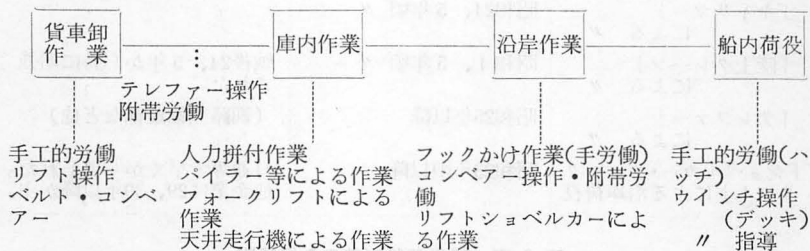 貨車卸作業
庫内作業
沿岸作業
船内荷役
テレファー操作
附帯労働
手工的労働
リフト操作
ベルト・コンベアー
人力拼付作業
パイラー等による作業
フォークリフトによる作業
天井走行機による作業
フックかけ作業(手労働)
コンベヤー操作・附帯労働
リフトショベルカーによる作業
手工的労働(ハッチ)
ウインチ操作
(デッキ)
〃 指導